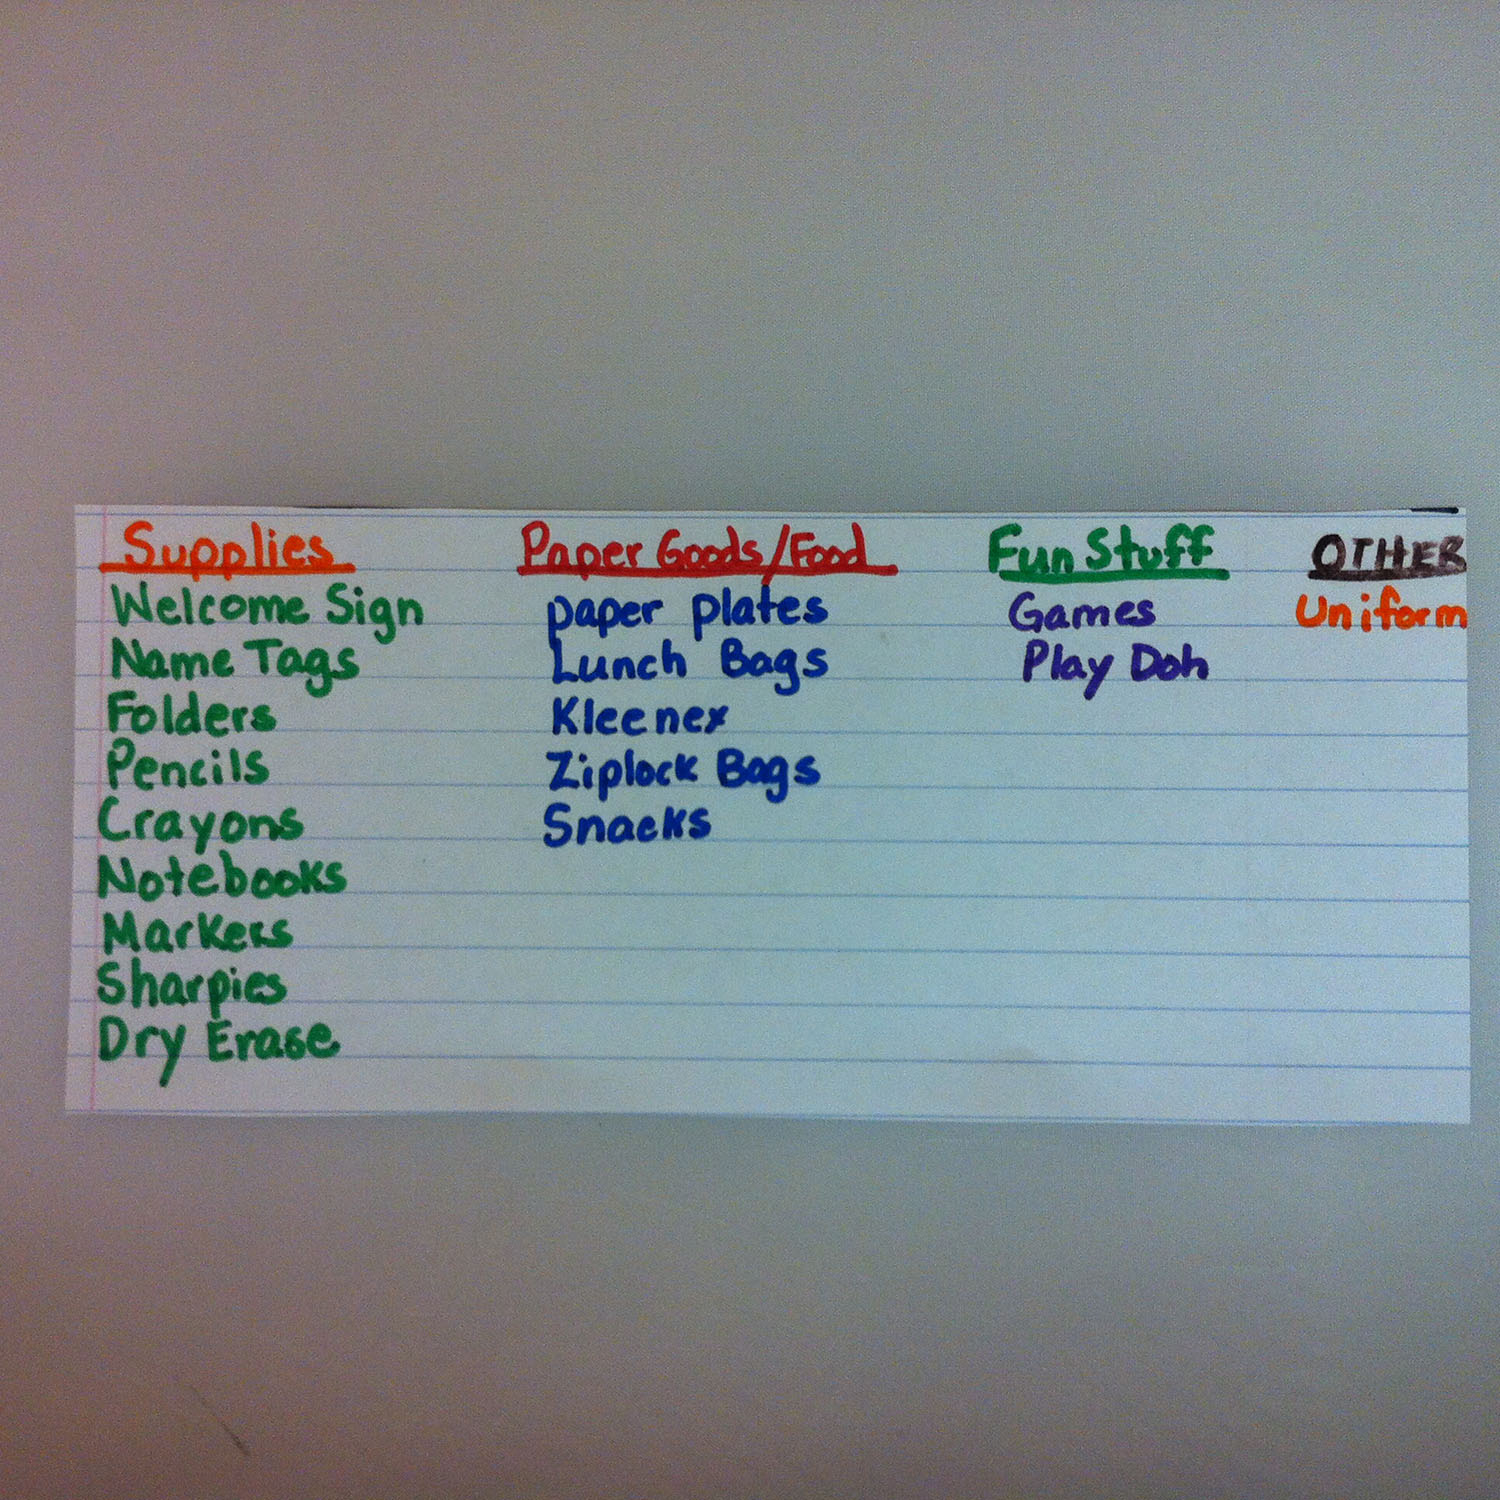 Supplies
Welcome Sign
Name Tags
Folders
Pencils
Crayons
Notebooks
Markers
Sharpies
Dry Erase
Paper Goods/Food
paper plates
Lunch Bags
Kleenex
Ziplock Bags
Snacks
Fun Stuff
Games
Play Doh
OTHER
Uniform